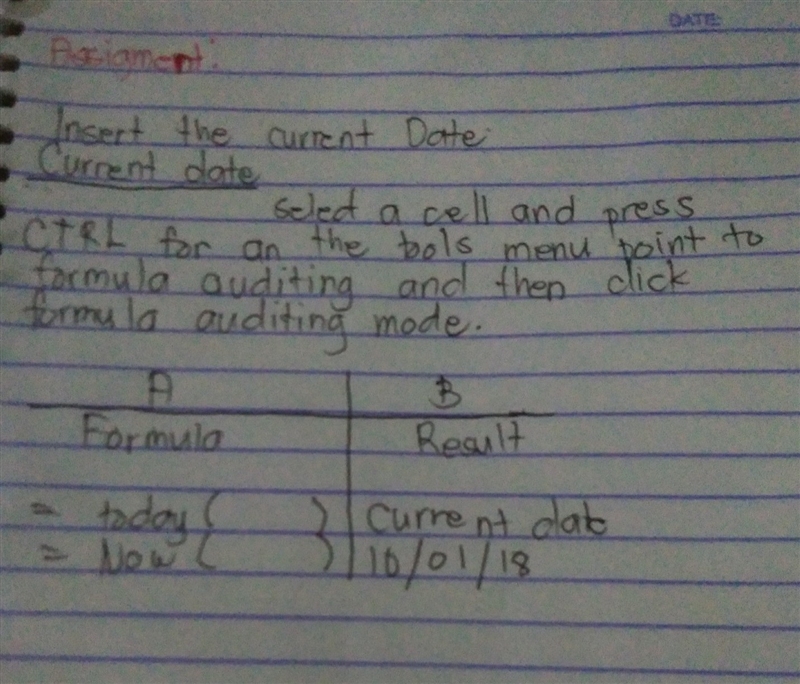 DATE:
Assigment:
Insert the current Date
Current date
select a cell and press
CTRL for an the tools menu point to
formula auditing and then click
formula auditing mode.
A B
Formula Result
= today ( } Current date
= Now ( 10/01/18